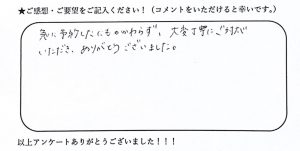 ★ご感想・ご要望をご記入ください！（コメントをいただけると幸いです。）
急に予約したにもかかわらず、大変丁寧にご対応
いただき、ありがとうございました。
以上アンケートありがとうございました！！！